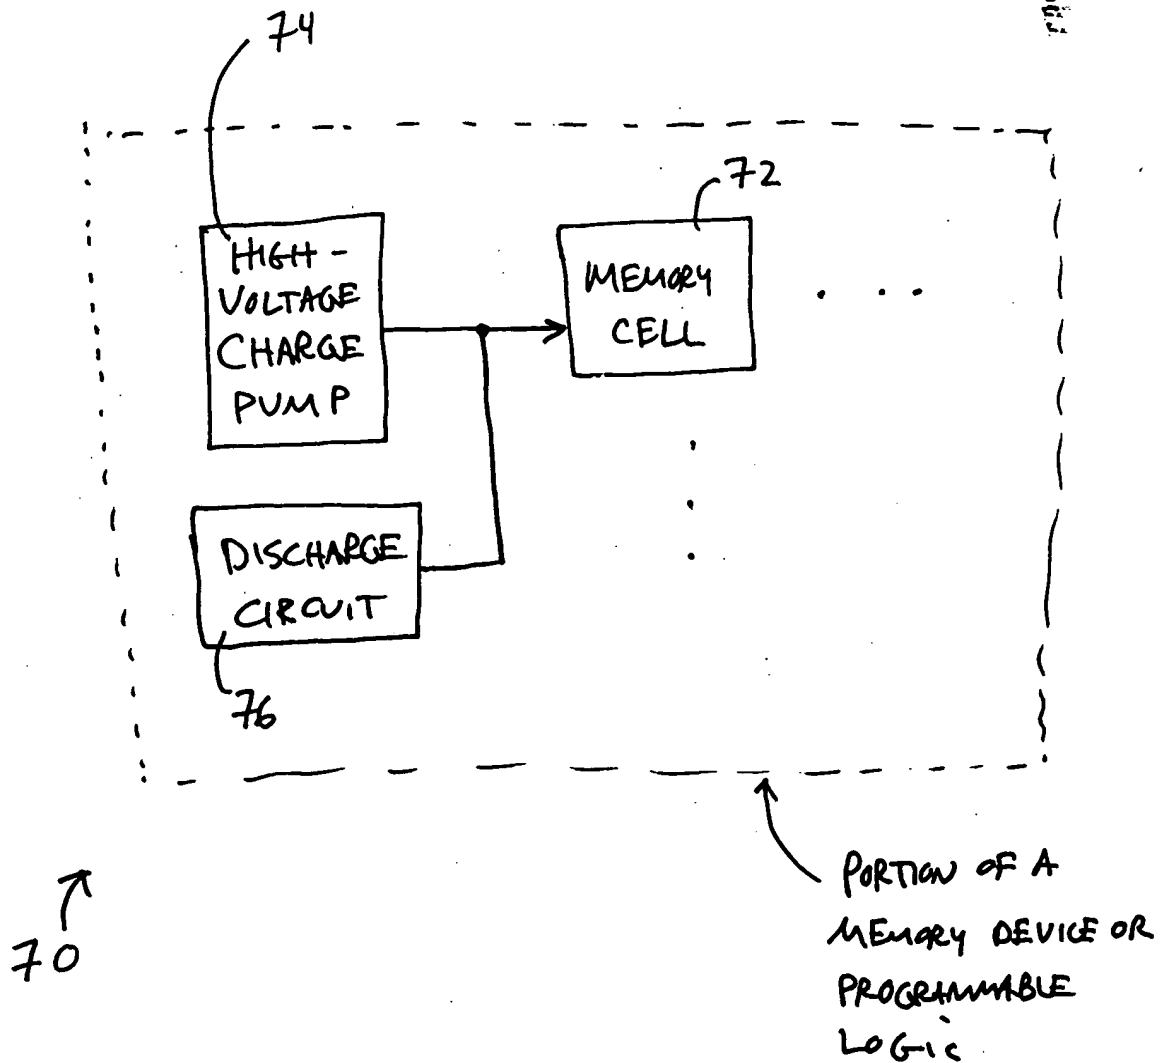 74
72
HIGH-
VOLTAGE
CHARGE
PUMP
MEMORY
CELL
DISCHARGE
CIRCUIT
76
70
PORTION OF A
MEMORY DEVICE OR
PROGRAMMABLE
LOGIC